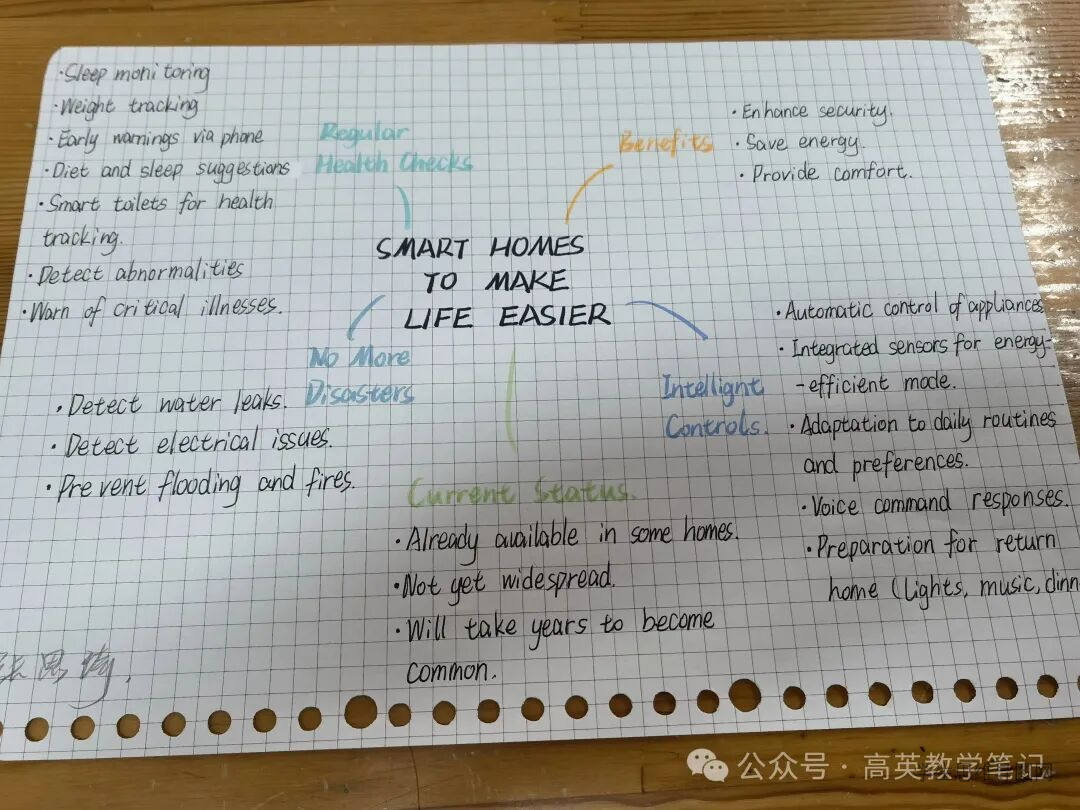 ·Sleep monitoring
·Weight tracking
·Early warnings via phone
·Diet and sleep suggestions
·Smart toilets for health
tracking.
·Detect abnormalities
·Warn of critical illnesses.
Regular
Health Checks
Benefits
·Enhance security.
·Save energy.
·Provide comfort.
SMART HOMES
TO MAKE
LIFE EASIER
No More
Disasters
·Detect water leaks.
·Detect electrical issues.
·Prevent flooding and fires.
Intellignt
Controls.
·Automatic control of appliances
·Integrated sensors for energy-
-efficient mode.
·Adaptation to daily routines
and preferences.
·Voice command responses.
·Preparation for return
home (lights, music, dinn
Current Status.
·Already available in some homes.
·Not yet widespread.
·Will take years to become
common.
张思琦.
公众号·高英教学笔记